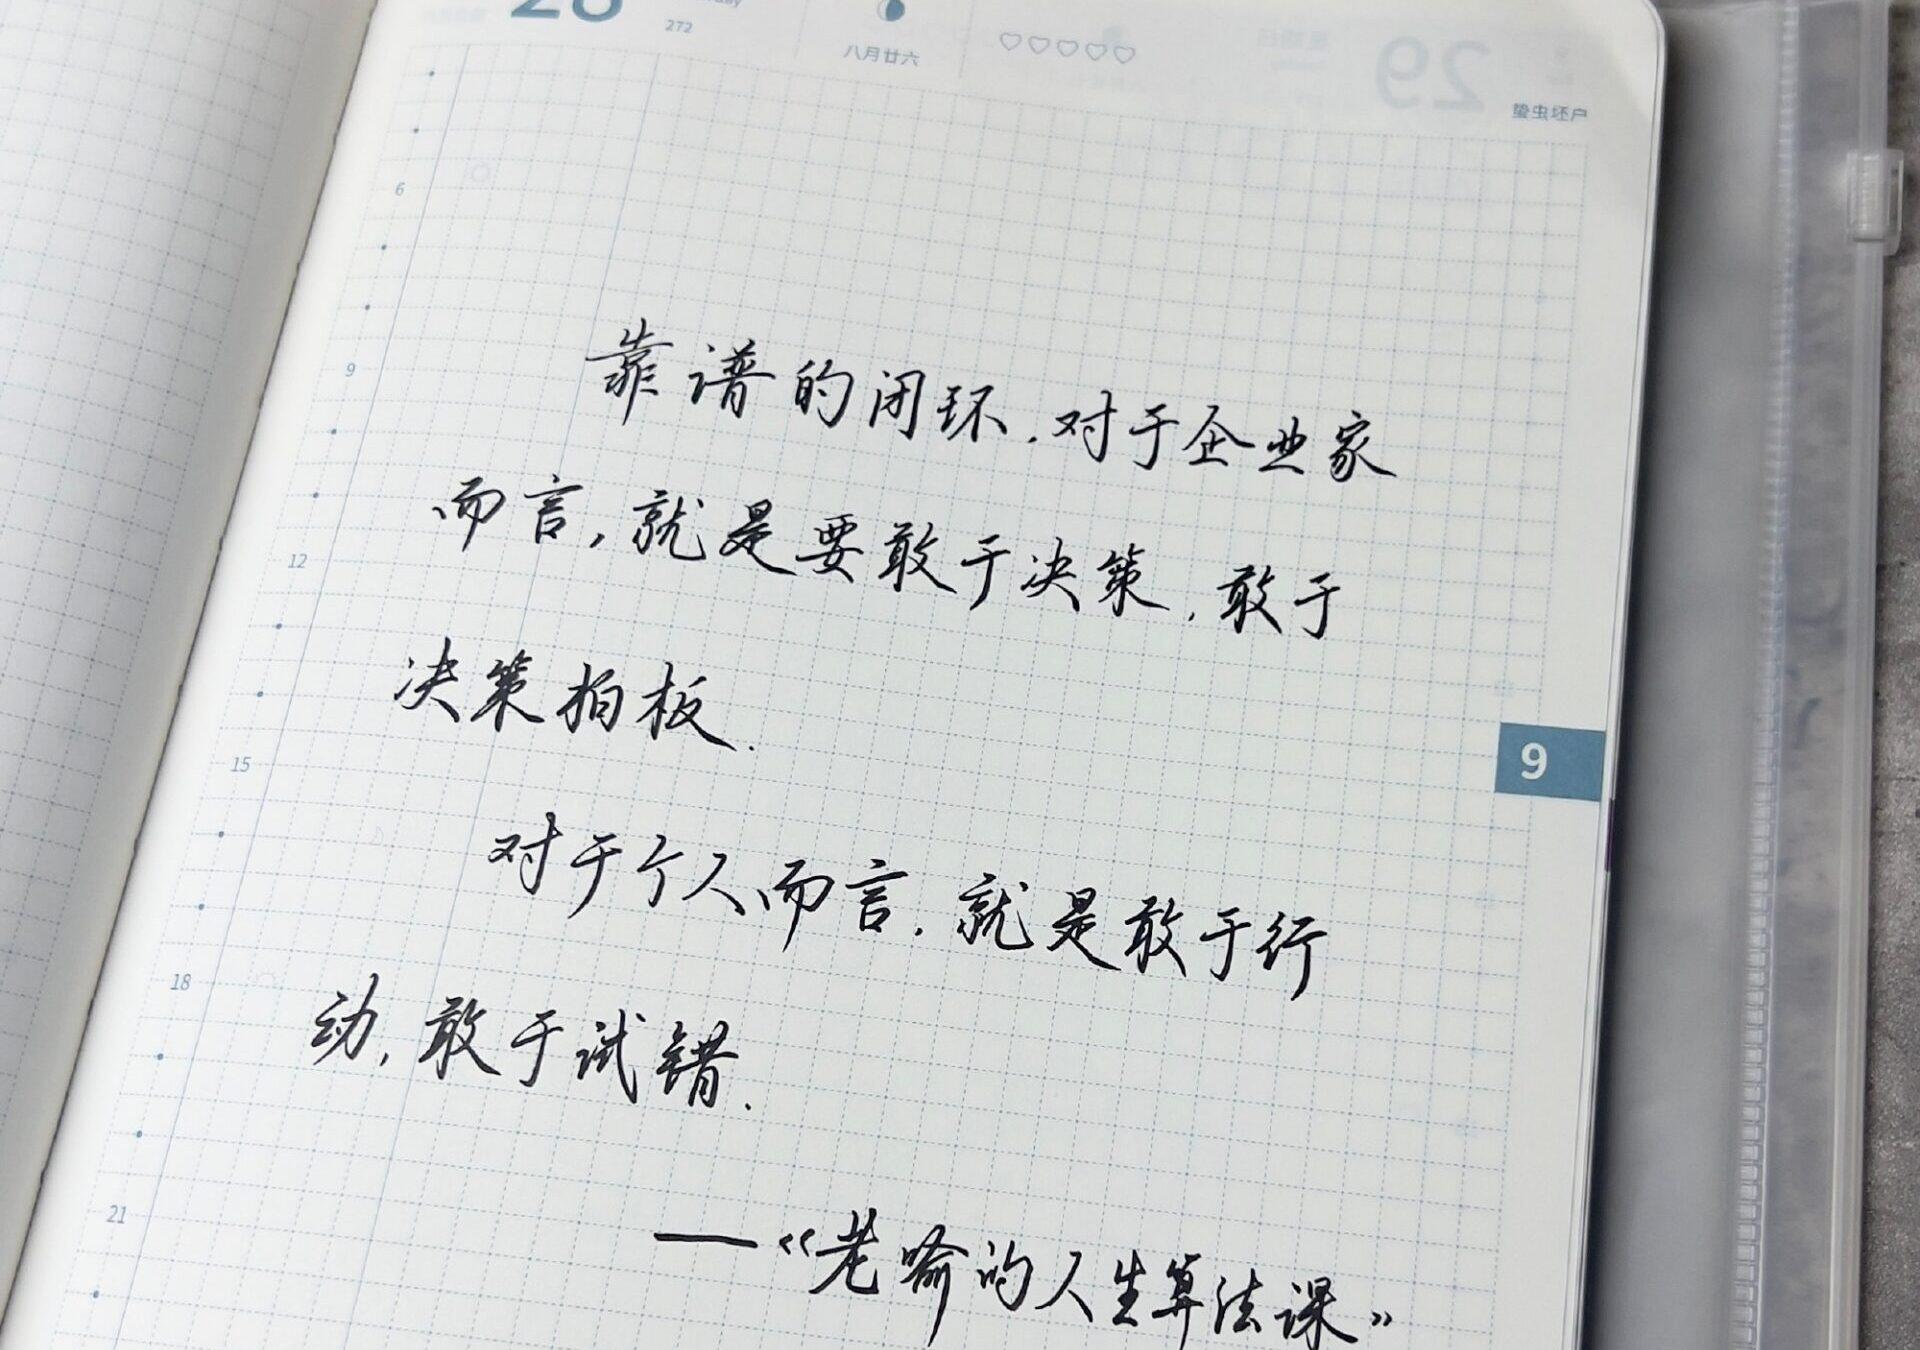 28
272
八月廿六
29
蛰虫坯户
6
9
12
15
18
21
靠谱的闭环,对于企业家
而言,就是要敢于决策,敢于
决策拍板.
9
对于个人而言,就是敢于行
动,敢于试错.
——《老喻的人生算法课》